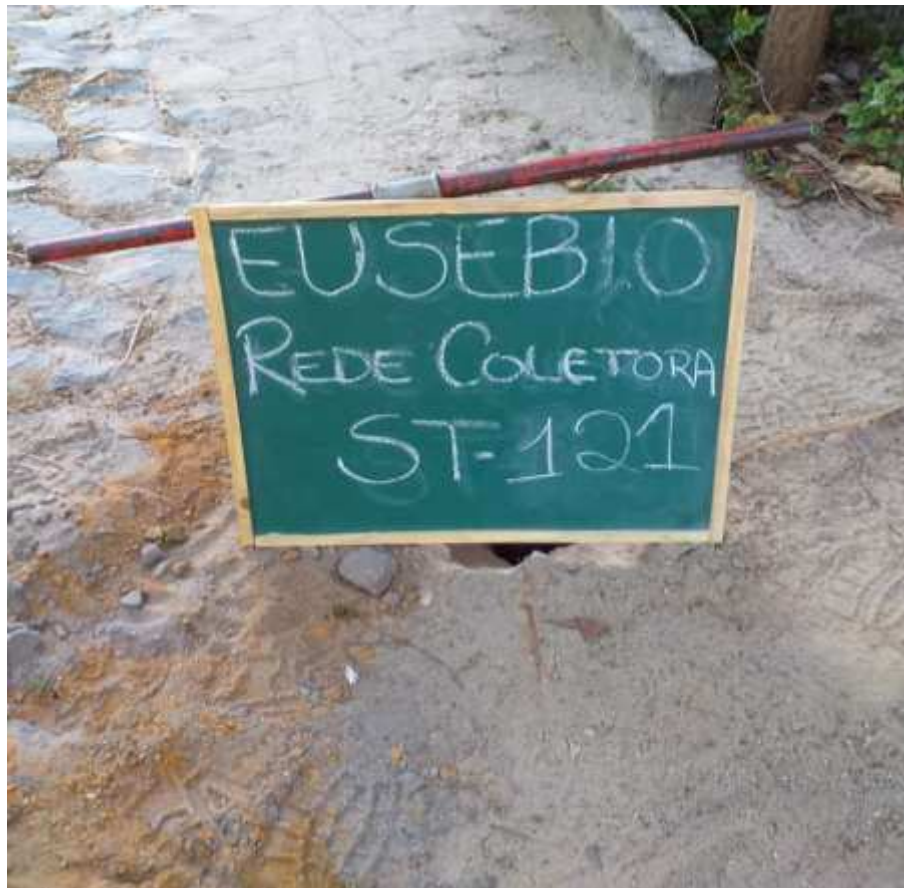 EUSEBIO
REDE COLETORA
ST-121